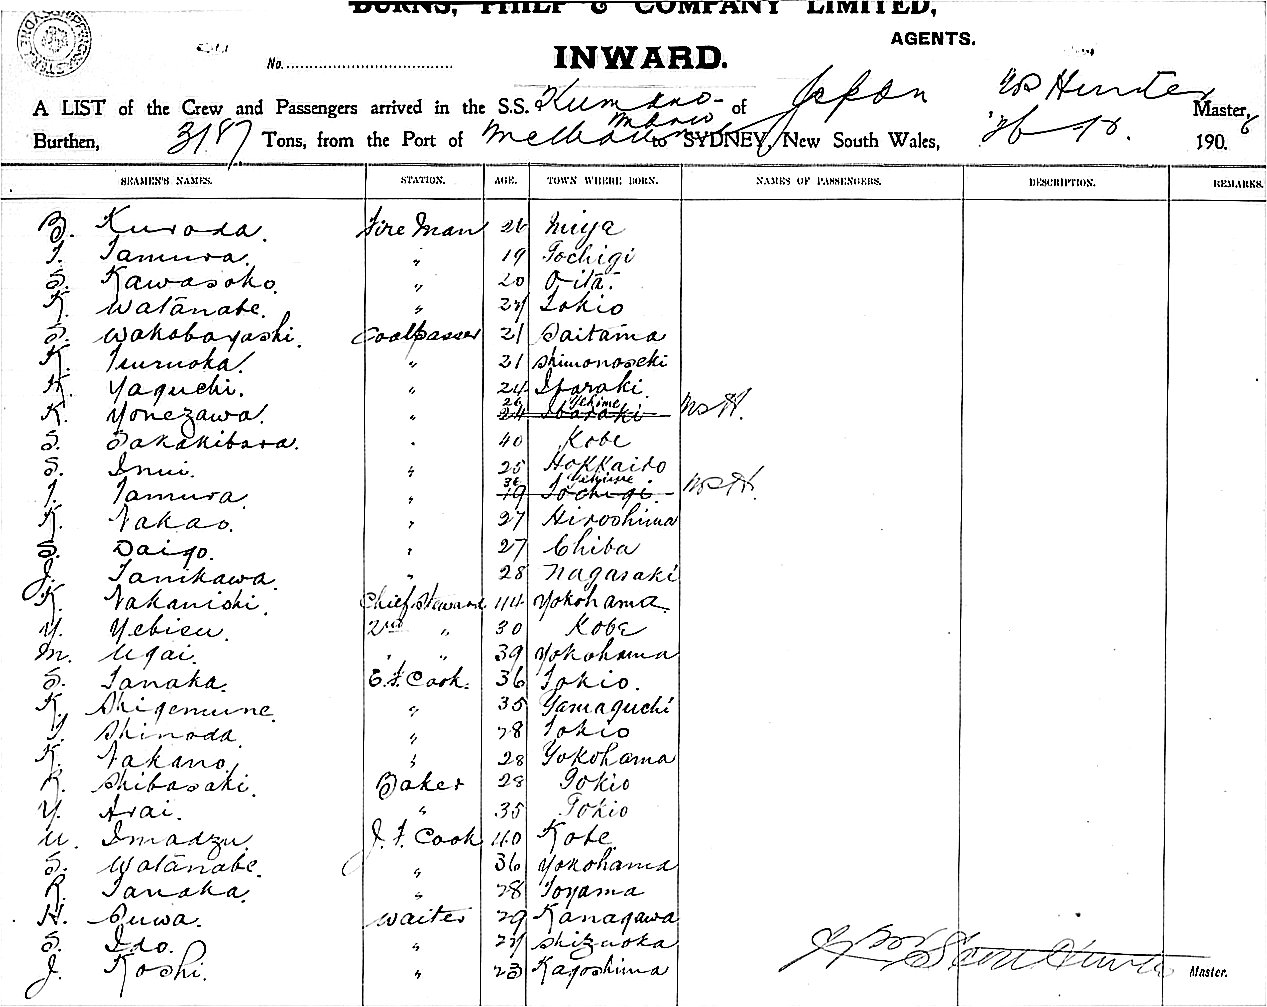 BURNS, PHILP & COMPANY LIMITED,
AGENTS.
No.
INWARD.
A LIST of the Crew and Passengers arrived in the S.S. Kumano- Maru of Japan Hunter Master,
Burthen, 3187 Tons, from the Port of Melbourne to SYDNEY, New South Wales, 1906
SEAMEN'S NAMES. STATION. AGE. TOWN WHERE BORN. NAMES OF PASSENGERS. DESCRIPTION. REMARKS.
B. Kuroda. Fire Man 26 Miya
T. Tamura. " 19 Tochigi
S. Kawasoko. " 20 Oita.
K. Watanabe. " 27 Tokio
S. Wakabayashi. Coalpasser 21 Saitama
K. Tsuruoka. " 21 Shimonoseki
H. Yaguchi. " 24 Ibaraki
26 Yehime
K. Yonezawa. " 24 Ibaraki WSH.
S. Sakakibara. " 40 Kobe
S. Inui. " 25 Hokkaido
36 Yehime
T. Tamura. " 19 Tochigi. WSH.
K. Nakao. " 27 Hiroshima
S. Daigo. " 27 Chiba
J. Tanikawa. " 28 Nagasaki
K. Nakanishi. Chief Steward 44 Yokohama.
Y. Yebisu. 2nd " 30 Kobe
M. Ugai. " " 39 Yokohama
S. Tanaka. E.F. Cook. 36 Tokio.
K. Shigemune. " 35 Yamaguchi
T. Shinoda. " 28 Tokio
K. Nakano. " 28 Yokohama
R. Shibasaki. Baker 28 Tokio
Y. Arai. " 35 Tokio
U. Imadzu. J.F. Cook 40 Kobe
S. Watanabe. " 36 Yokohama
R. Tanaka. " 28 Toyama
H. Suwa. Waiter 29 Kanagawa
S. Ido. " 27 Shizuoka
J. Koshi. " 23 Kagoshima
Scott Hunter Master.